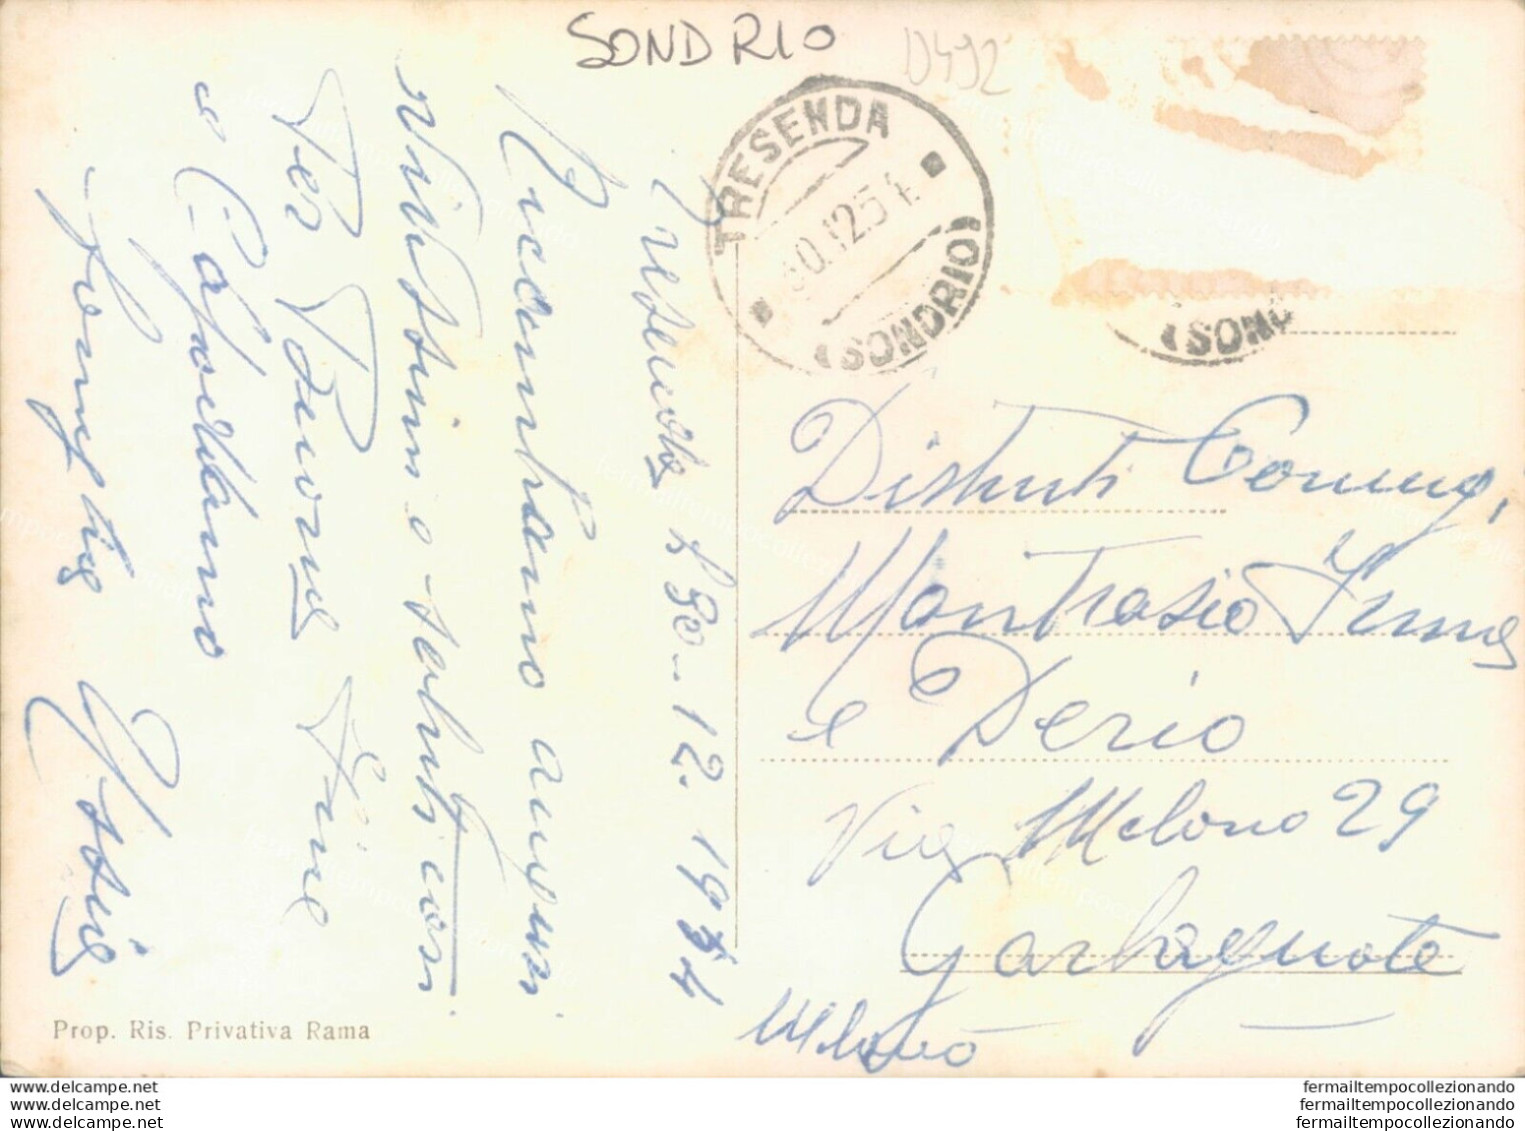 SONDRIO
0492
TRESENDA
30.12.54
(SONDRIO)
(SOND
Tresenda 30-12-1954
Ricambiamo auguri
vivissimi e
Per Buona Fine
e Capodanno
Famiglia
Distinti Coniugi
Montrasio Irma
e Derio
Via Milano 29
Garbagnate
Milano
Prop. Ris. Privativa Rama
www.delcampe.net
www.delcampe.net
www.delcampe.net
fermailtempocollezionando
fermailtempocollezionando
fermailtempocollezionando